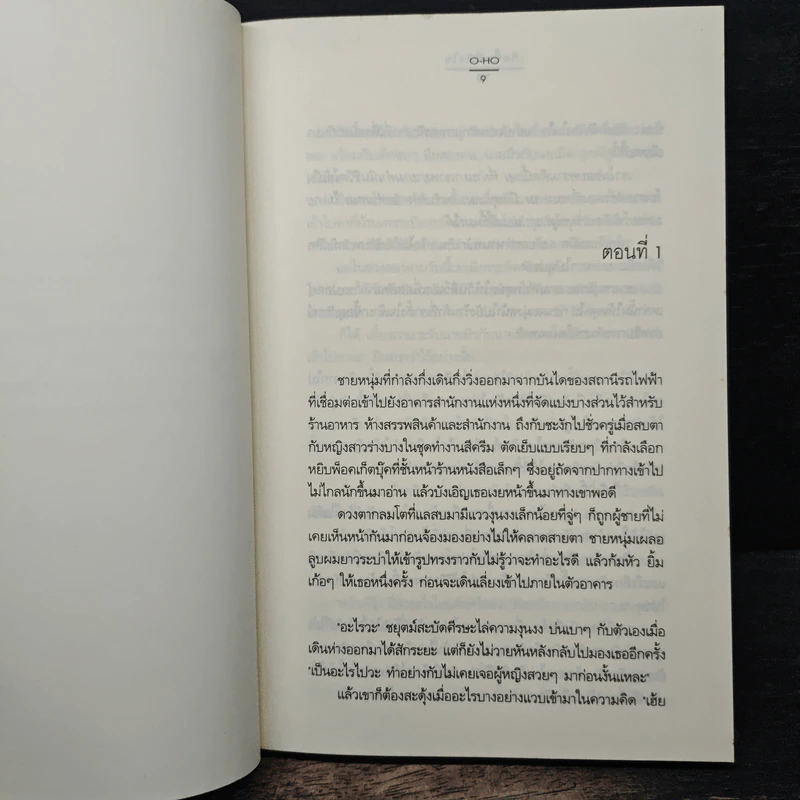 O-HO
9
ตอนที่ 1
ชายหนุ่มที่กำลังกึ่งเดินกึ่งวิ่งออกมาจากบันไดของสถานีรถไฟฟ้า
ที่เชื่อมต่อเข้าไปยังอาคารสำนักงานแห่งหนึ่งที่จัดแบ่งบางส่วนไว้สำหรับ
ร้านอาหาร ห้างสรรพสินค้าและสำนักงาน ถึงกับชะงักไปชั่วครู่เมื่อสบตา
กับหญิงสาวร่างบางในชุดทำงานสีครีม ตัดเย็บแบบเรียบๆ ที่กำลังเลือก
หยิบพ็อคเก็ตบุ๊คที่ชั้นหน้าร้านหนังสือเล็กๆ ซึ่งอยู่ถัดจากปากทางเข้าไป
ไม่ไกลนักขึ้นมาอ่าน แล้วบังเอิญเธอเงยหน้าขึ้นมาทางเขาพอดี
ดวงตากลมโตที่แลสบมามีแววงุนงงเล็กน้อยที่จู่ๆ ก็ถูกผู้ชายที่ไม่
เคยเห็นหน้ากันมาก่อนจ้องมองอย่างไม่ให้คลาดสายตา ชายหนุ่มเผลอ
ลูบผมยาวระบ่าให้เข้ารูปทรงราวกับไม่รู้ว่าจะทำอะไรดี แล้วก้มหัว ยิ้ม
เก้อๆ ให้เธอหนึ่งครั้ง ก่อนจะเดินเลี่ยงเข้าไปภายในตัวอาคาร
"อะไรวะ" ชยุตม์สะบัดศีรษะไล่ความงุนงง บ่นเบาๆ กับตัวเองเมื่อ
เดินห่างออกมาได้สักระยะ แต่ก็ยังไม่วายหันหลังกลับไปมองเธออีกครั้ง
"เป็นอะไรไปวะ ทำอย่างกับไม่เคยเจอผู้หญิงสวยๆ มาก่อนงั้นแหละ"
แล้วเขาก็ต้องสะดุ้งเมื่ออะไรบางอย่างแวบเข้ามาในความคิด "เฮ้ย